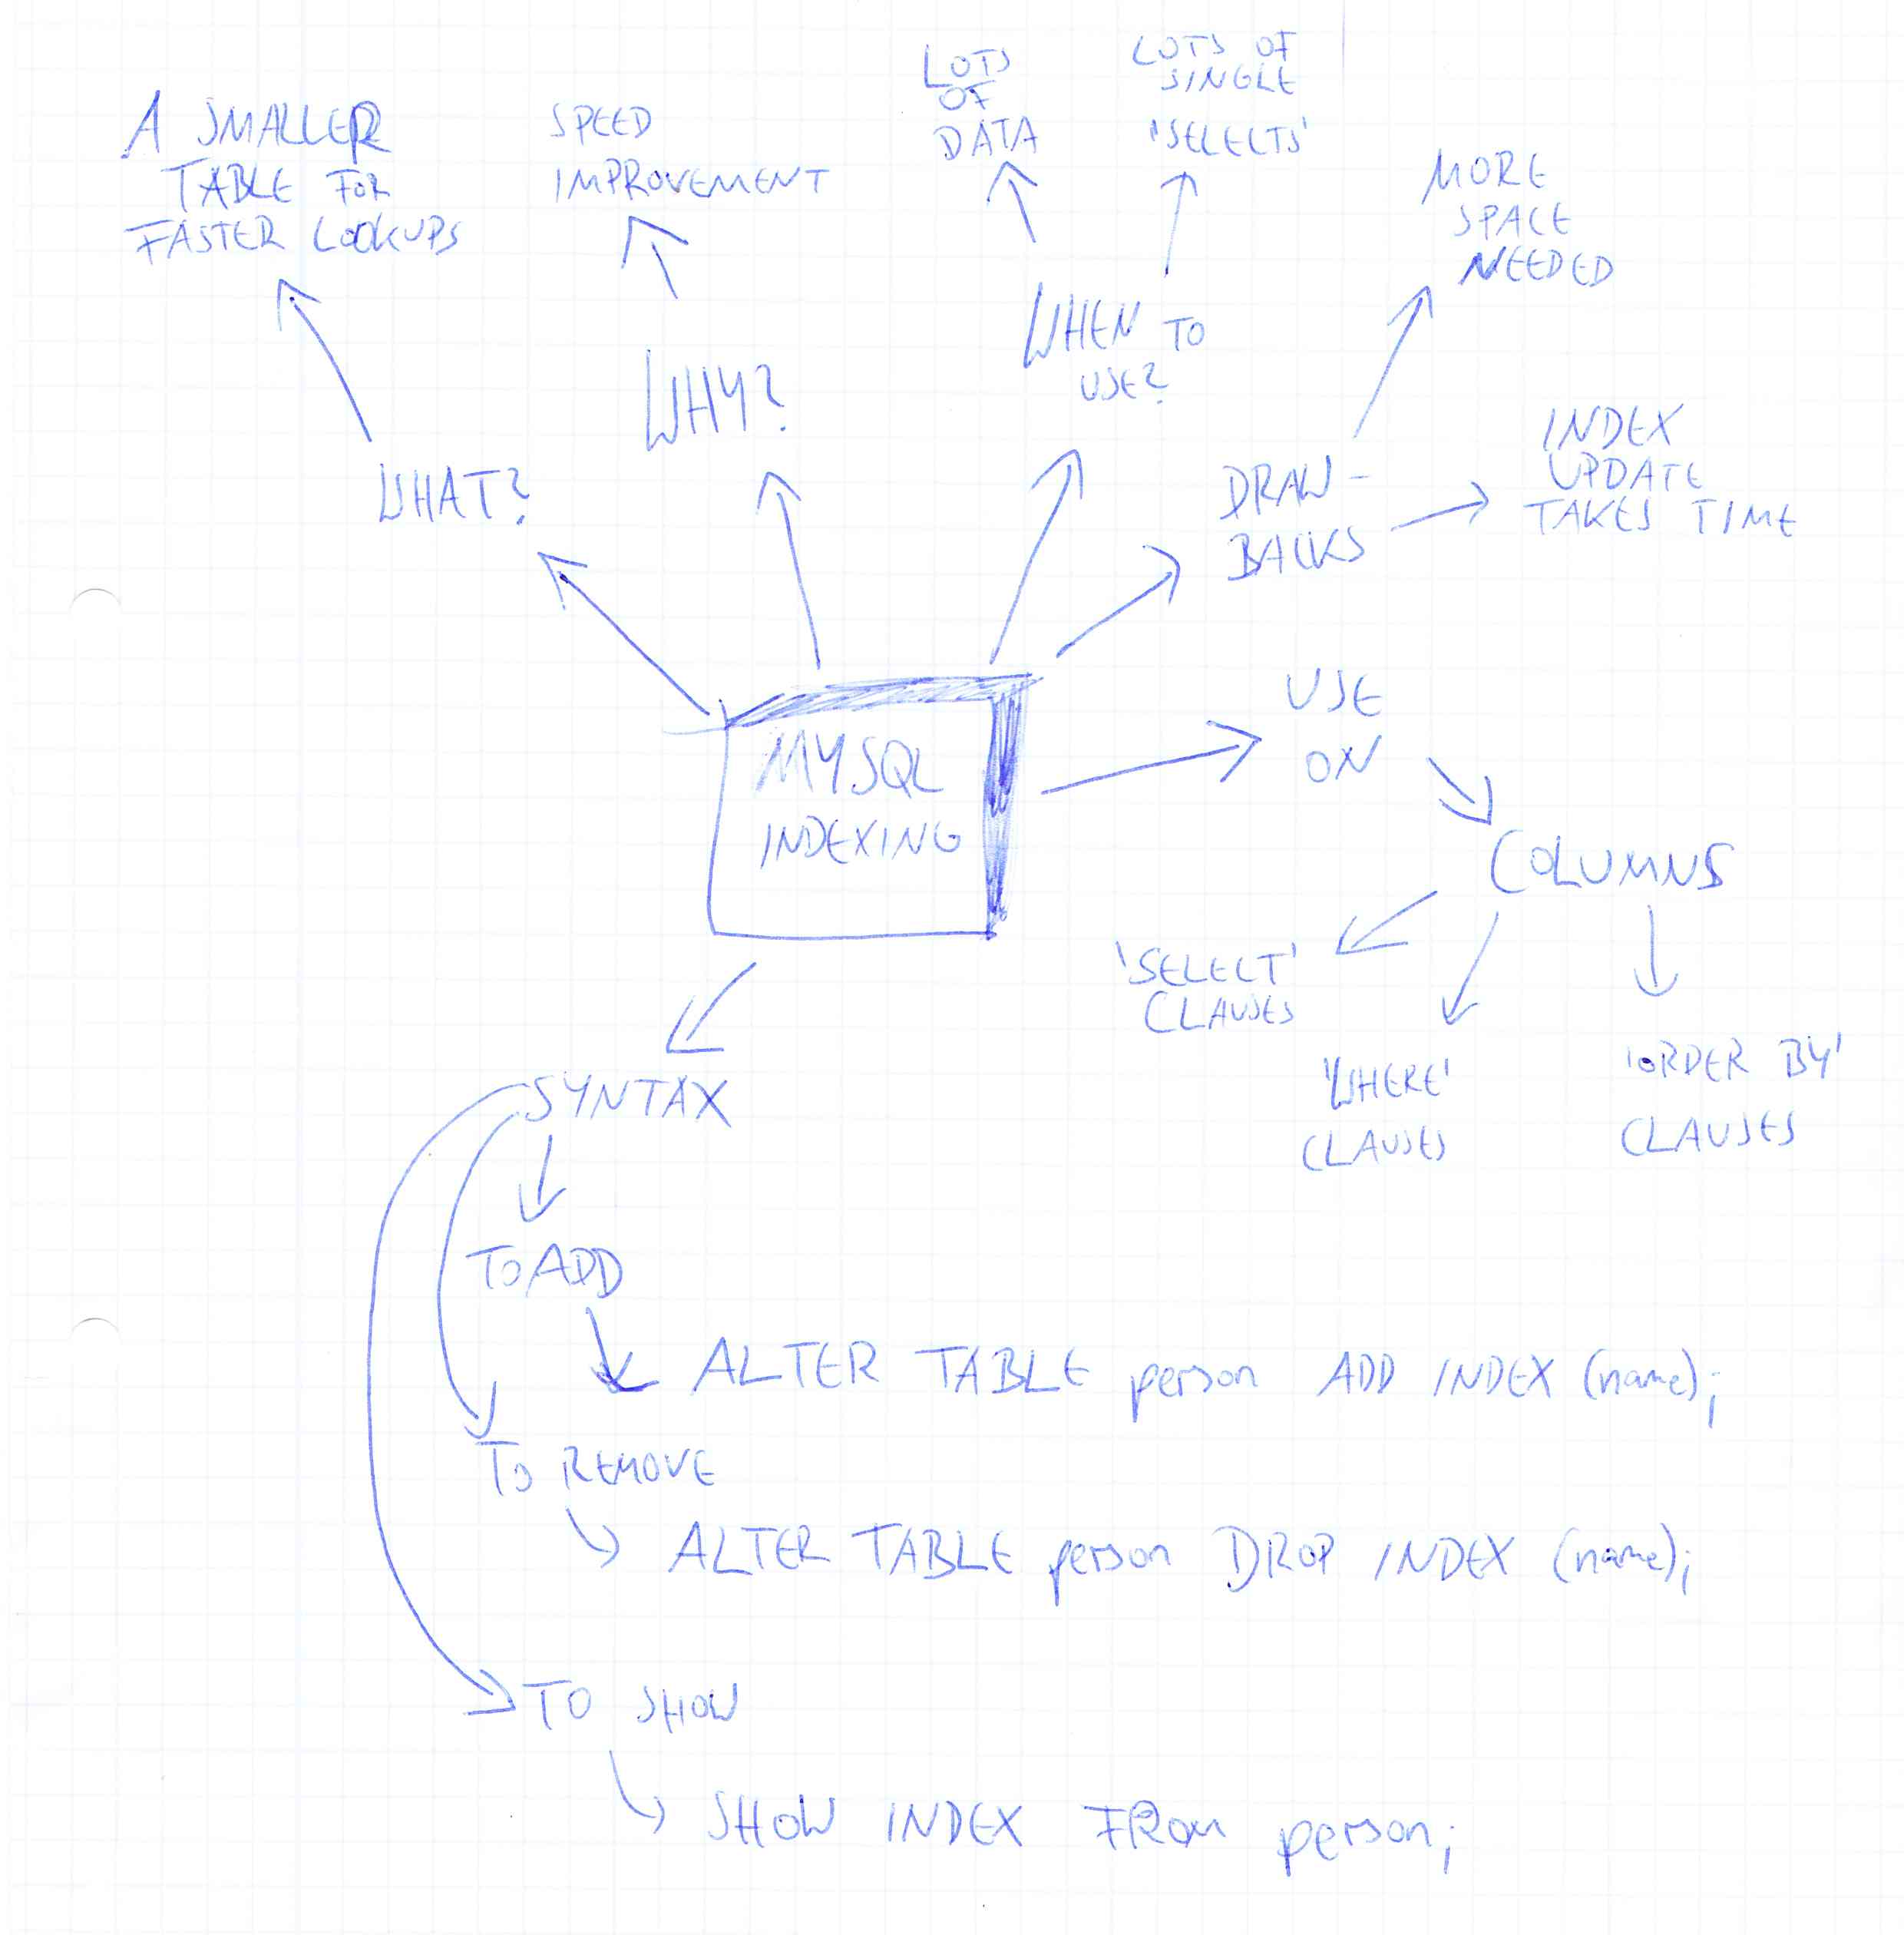 A SMALLER
TABLE FOR
FASTER LOOKUPS
SPEED
IMPROVEMENT
LOTS
OF
DATA
LOTS OF
SINGLE
'SELECTS'
MORE
SPACE
NEEDED
WHAT?
WHY?
WHEN TO
USE?
DRAW-
BACKS
INDEX
UPDATE
TAKES TIME
MYSQL
INDEXING
USE
ON
COLUMNS
'SELECT'
CLAUSES
'WHERE'
CLAUSES
'ORDER BY'
CLAUSES
SYNTAX
TO ADD
ALTER TABLE person ADD INDEX (name);
TO REMOVE
ALTER TABLE person DROP INDEX (name);
TO SHOW
SHOW INDEX FROM person;